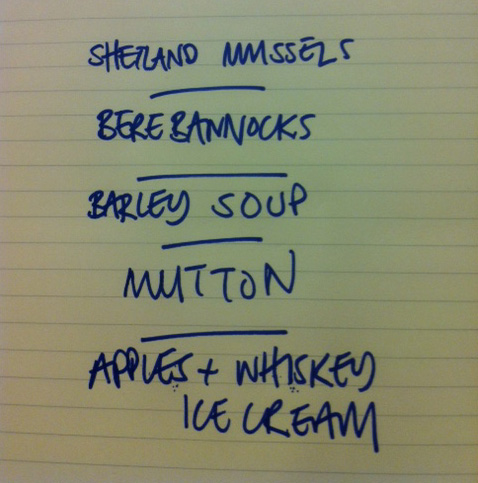 SHETLAND MUSSELS
BERE BANNOCKS
BARLEY SOUP
MUTTON
APPLES + WHISKEY
ICE CREAM